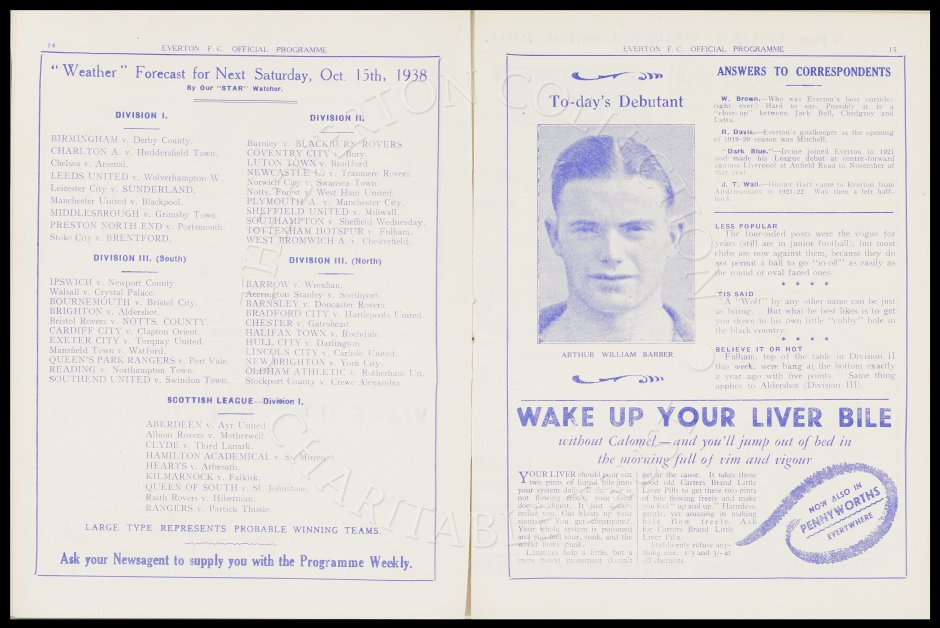 14
EVERTON F.C. OFFICIAL PROGRAMME
"Weather" Forecast for Next Saturday, Oct. 15th, 1938
By Our "STAR" Watcher.
DIVISION I.
BIRMINGHAM v. Derby County.
CHARLTON A. v. Huddersfield Town.
Chelsea v. Arsenal.
LEEDS UNITED v. Wolverhampton W.
Leicester City v. SUNDERLAND.
Manchester United v. Blackpool.
MIDDLESBROUGH v. Grimsby Town.
PRESTON NORTH END v. Portsmouth.
Stoke City v. BRENTFORD.
DIVISION II.
Burnley v. BLACKBURN ROVERS
COVENTRY CITY v. Bury.
LUTON TOWN v. Bradford.
NEWCASTLE U. v. Tranmere Rovers.
Norwich City v. Swansea Town.
Notts. Forest v. West Ham United.
PLYMOUTH A. v. Manchester City.
SHEFFIELD UNITED v. Millwall.
SOUTHAMPTON v. Sheffield Wednesday.
TOTTENHAM HOTSPUR v. Fulham.
WEST BROMWICH A. v. Chesterfield.
DIVISION III. (South)
IPSWICH v. Newport County.
Walsall v. Crystal Palace.
BOURNEMOUTH v. Bristol City.
BRIGHTON v. Aldershot.
Bristol Rovers v. NOTTS. COUNTY.
CARDIFF CITY v. Clapton Orient.
EXETER CITY v. Torquay United.
Mansfield Town v. Watford.
QUEEN'S PARK RANGERS v. Port Vale.
READING v. Northampton Town.
SOUTHEND UNITED v. Swindon Town.
DIVISION III. (North)
BARROW v. Wrexham.
Accrington Stanley v. Southport.
BARNSLEY v. Doncaster Rovers.
BRADFORD CITY v. Hartlepools United.
CHESTER v. Gateshead.
HALIFAX TOWN v. Rochdale.
HULL CITY v. Darlington.
LINCOLN CITY v. Carlisle United.
NEW BRIGHTON v. York City.
OLDHAM ATHLETIC v. Rotherham Un.
Stockport County v. Crewe Alexandra.
SCOTTISH LEAGUE—Division I.
ABERDEEN v. Ayr United.
Albion Rovers v. Motherwell.
CLYDE v. Third Lanark.
HAMILTON ACADEMICAL v. St. Mirren.
HEARTS v. Arbroath.
KILMARNOCK v. Falkirk.
QUEEN OF SOUTH v. St. Johnstone.
Raith Rovers v. Hibernian.
RANGERS v. Partick Thistle.
LARGE TYPE REPRESENTS PROBABLE WINNING TEAMS.
Ask your Newsagent to supply you with the Programme Weekly.
EVERTON F.C. OFFICIAL PROGRAMME
15
To-day's Debutant
ARTHUR WILLIAM BARBER
ANSWERS TO CORRESPONDENTS
W. Brown.—Who was Everton's best outside-
right ever? Hard to say. Possibly it is a
"close-up" between Jack Bell, Chedgzoy and
Latta.
R. Davis.—Everton's goalkeeper at the opening
of 1919-20 season was Mitchell.
"Dark Blue."—Irvine joined Everton in 1921
and made his League debut at centre-forward
against Liverpool at Anfield Road in November of
that year.
J. T. Wall.—Hunter Hart came to Everton from
Airdrieonians in 1921-22. Was then a left half-
back.
LESS POPULAR
The four-sided posts were the vogue for
years (still are in junior football), but most
clubs are now against them, because they do
not permit a ball to go "in-off" as easily as
the round or oval faced ones.
* * * *
'TIS SAID
A "Wolf" by any other name can be just
as biting. But what he best likes is to get
you down to his own little "cubby" hole in
the black country.
* * * *
BELIEVE IT OR NOT
Fulham, top of the table in Division II
this week, were bang at the bottom exactly
a year ago with five points. Same thing
applies to Aldershot (Division III).
WAKE UP YOUR LIVER BILE
without Calomel—and you'll jump out of bed in
the morning full of vim and vigour
YOUR LIVER should pour out
two pints of liquid bile into
your system daily. If this bile is
not flowing freely, your food
doesn't digest. It just decays
inside you. Gas bloats up your
stomach. You get constipated.
Your whole system is poisoned
and you feel sour, sunk, and the
world looks punk.
Laxatives help a little, but a
mere bowel movement doesn't
get at the cause. It takes those
good old Carters Brand Little
Liver Pills to get these two pints
of bile flowing freely and make
you feel "up and up." Harmless,
gentle, yet amazing in making
bile flow freely. Ask
for Carters Brand Little
Liver Pills.
Stubbornly refuse any-
thing else. 1/3 and 3/- at
all chemists.
NOW ALSO IN
PENNYWORTHS
EVERYWHERE
THE EVERTON COLLECTION
CHARITABLE TRUST